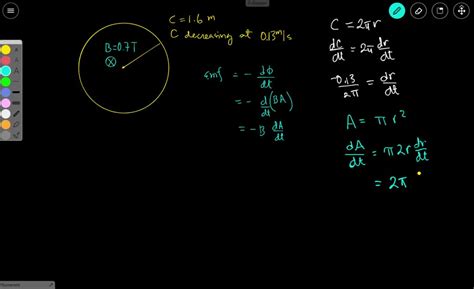 C = 1.6 m
C decreasing at 0.13 m/s
B = 0.7T
emf = - dϕ/dt
= - d/dt (BA)
= -B dA/dt
C = 2πr
dC/dt = 2π dr/dt
-0.13/2π = dr/dt
A = πr²
dA/dt = π2r dr/dt
= 2π